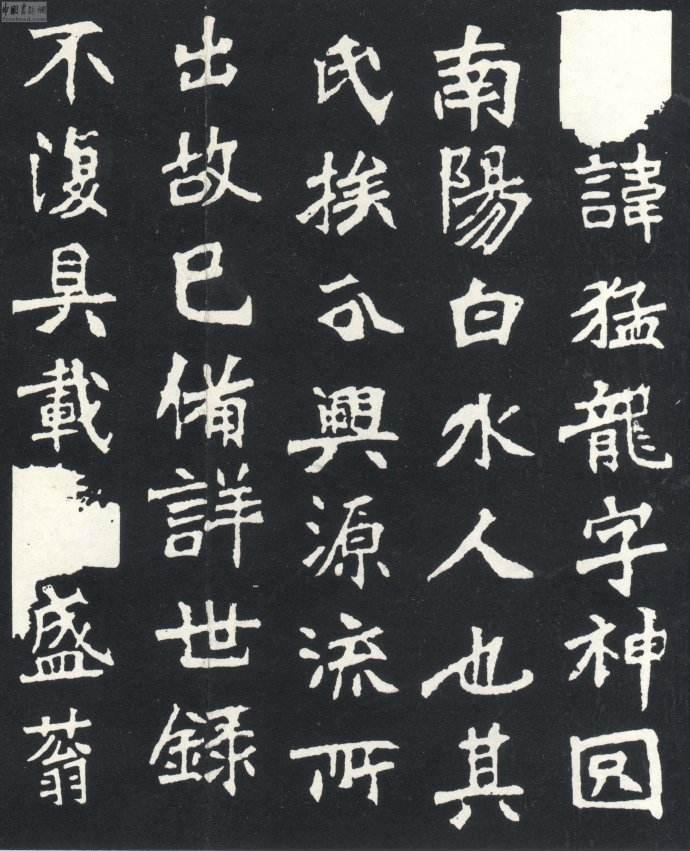 諱猛龍字神囧
南陽白水人也其
氏族分興源流所
出故已備詳世録
不復具載盛蓊